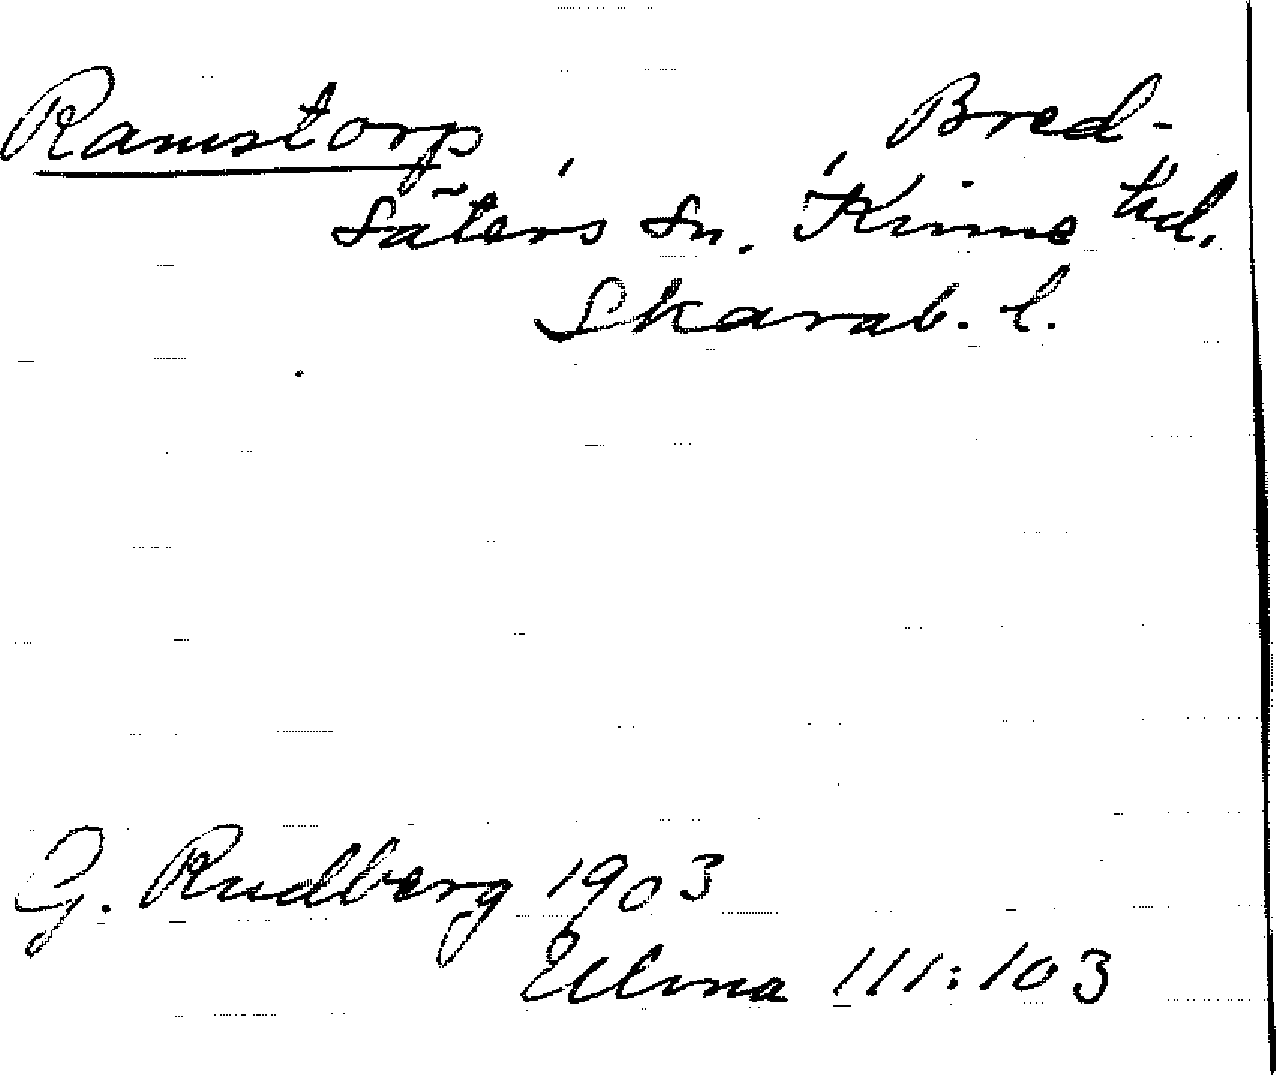 Ramstorp Bred-
säters sn. Kinne hd.
Skarab. l.
G. Rudberg 1903
Ullma 111:103